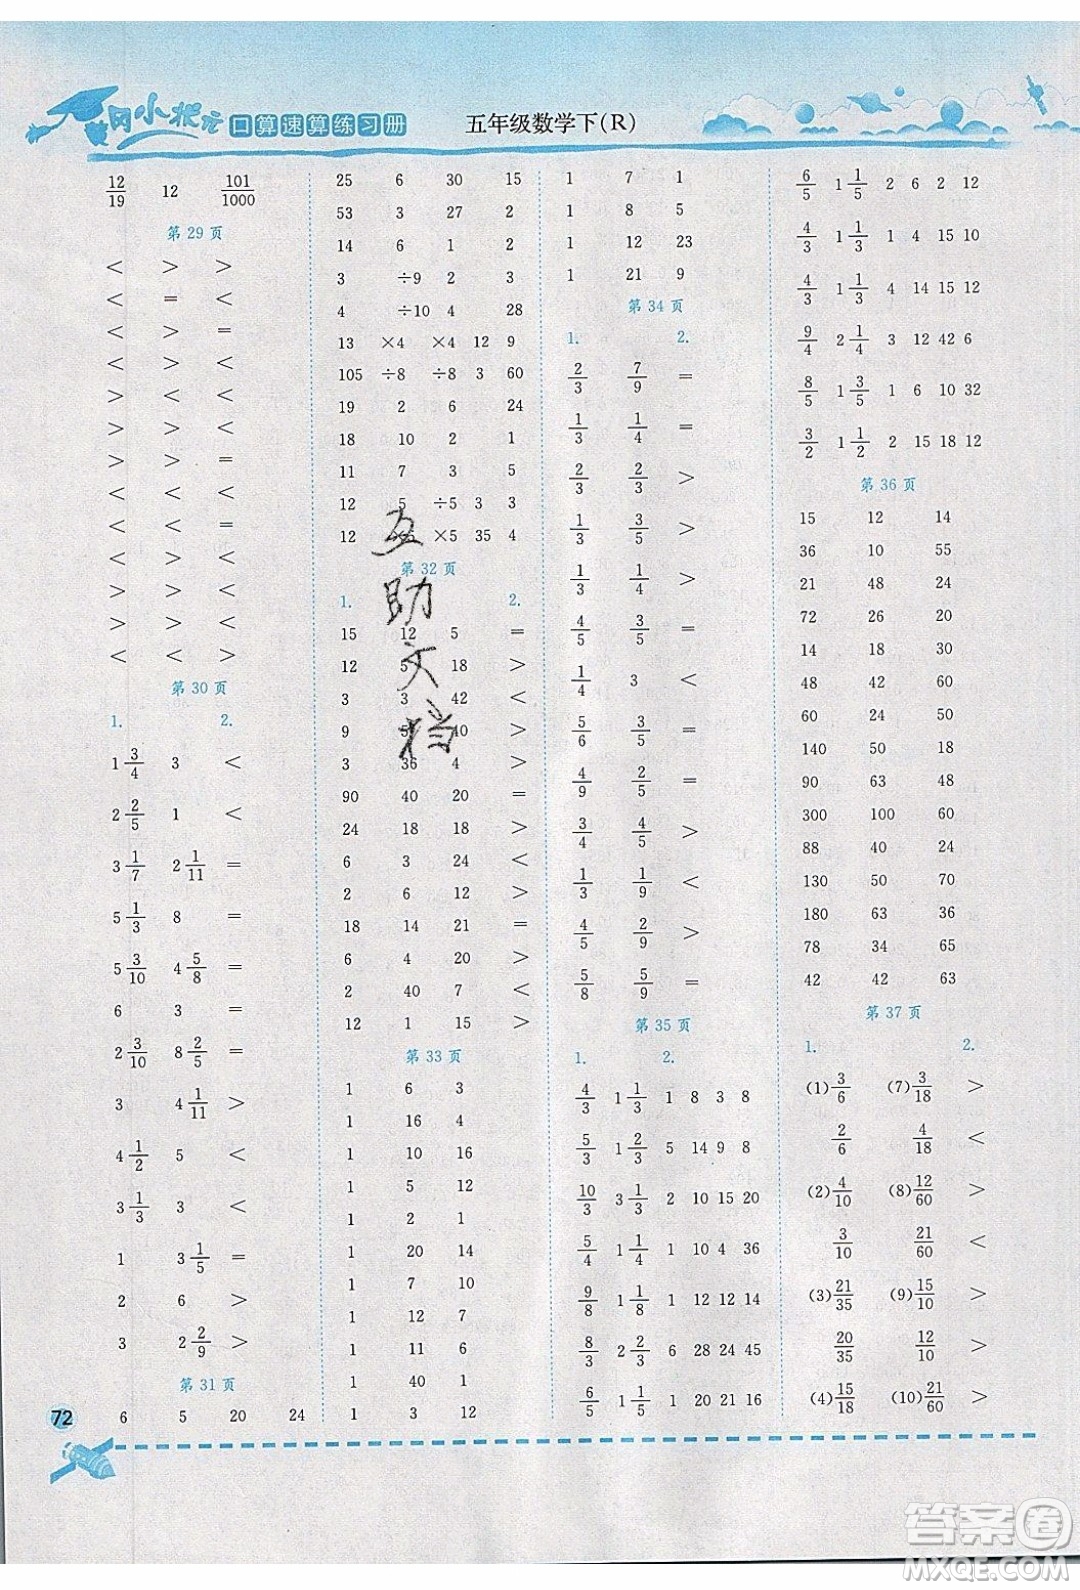 冈小状元
口算速算练习册 五年级数学下(R)
12/19 12 101/1000
第29页
< > >
< = <
< > =
< > <
> < <
> > <
> > =
< < <
< < =
< > <
> > <
> > <
< < <
第30页
1. 2.
1 3/4 3 <
2 2/5 1 <
3 1/7 2 1/11 =
5 1/3 8 =
5 3/10 4 5/8 =
6 3 =
2 3/10 8 2/5 =
3 4 1/11 >
4 1/2 5 <
3 1/3 3 <
1 3 1/5 =
2 6 >
3 2 2/9 >
第31页
6 5 20 24
25 6 30 15
53 3 27 2
14 6 1 2
3 ÷9 2 3
4 ÷10 4 28
13 ×4 ×4 12 9
105 ÷8 ÷8 3 60
19 2 6 24
18 10 2 1
11 7 3 5
12 5 ÷5 3 3
12 ×5 35 4
第32页
1. 2.
15 12 5 =
12 5 18 >
3 3 42 <
9 5 40 >
3 36 4 >
90 40 20 =
24 18 18 >
6 3 24 <
2 6 12 >
18 14 21 =
6 4 20 >
2 40 7 <
12 1 15 >
第33页
1 6 3
1 16 4
1 10 16
1 5 12
1 2 1
1 20 14
1 7 10
1 12 7
1 11 6
1 40 1
1 3 12
1 7 1
1 8 5
1 12 23
1 21 9
第34页
1. 2.
2/3 7/9 =
1/3 1/4 =
2/3 2/3 >
1/3 3/5 >
1/3 1/4 >
4/5 3/5 =
1/4 3 <
5/6 3/5 =
4/9 2/5 =
3/4 4/5 >
1/3 1/9 <
4/5 2/9 >
5/8 5/9 =
第35页
1. 2.
4/3 1 1/3 1 8 3 8
5/3 1 2/3 5 14 9 8
10/3 3 1/3 2 10 15 20
5/4 1 1/4 1 10 4 36
9/8 1 1/8 1 12 12 14
8/3 2 2/3 6 28 24 45
6/5 1 1/5 1 20 21 16
6/5 1 1/5 2 6 2 12
4/3 1 1/3 1 4 15 10
4/3 1 1/3 4 14 15 12
9/4 2 1/4 3 12 42 6
8/5 1 3/5 1 6 10 32
3/2 1 1/2 2 15 18 12
第36页
15 12 14
36 10 55
21 48 24
72 26 20
14 18 30
48 42 60
60 24 50
140 50 18
90 63 48
300 100 60
88 40 24
130 50 70
180 63 36
78 34 65
42 42 63
第37页
1. 2.
(1) 3/6 (7) 3/18 >
2/6 4/18 <
(2) 4/10 (8) 12/60 >
3/10 21/60 <
(3) 21/35 (9) 15/10 >
20/35 12/10 >
(4) 15/18 (10) 21/60 >
互助文档
72
答案圈
MXQE.COM